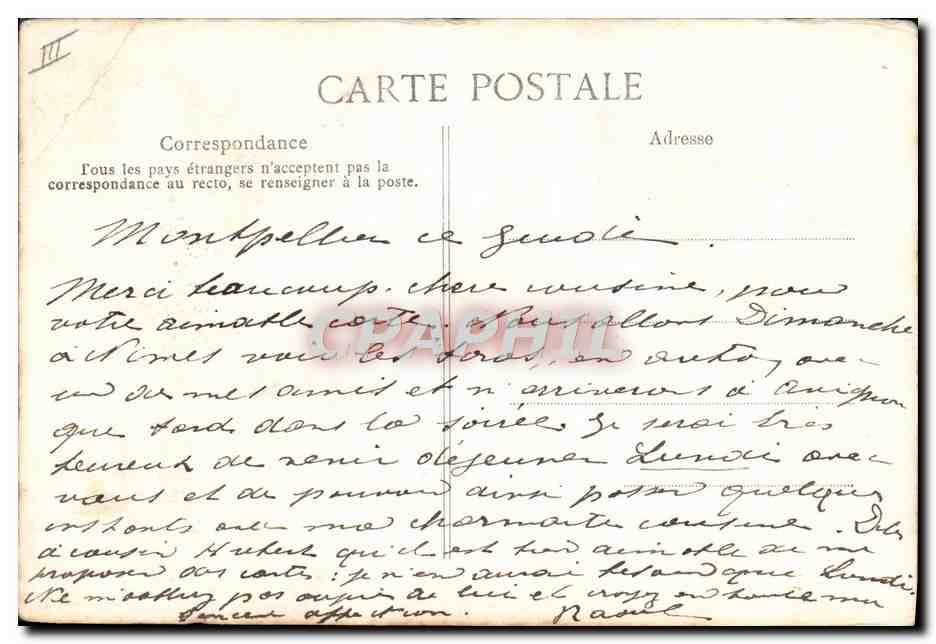 III
CARTE POSTALE
Correspondance
Tous les pays étrangers n'acceptent pas la
correspondance au recto, se renseigner à la poste.
Adresse
Montpellier ce Jeudi.
Merci beaucoup, chère cousine, pour
votre aimable carte. Nous allons Dimanche
à Nîmes voir les toros, en auto, avec
un de mes amis et n'arriverons à Avignon
que tard dans la soirée. Je serai très
heureux de venir déjeuner Lundi avec
vous et de pouvoir ainsi passer quelques
instants avec ma charmante cousine. Dites
à cousin Hubert qu'il est bien aimable de me
proposer des cartes : je n'en aurai besoin que Lundi.
Ne m'oubliez pas auprès de lui et croyez en toute ma
sincère affection. Raoul
CPAPHIL